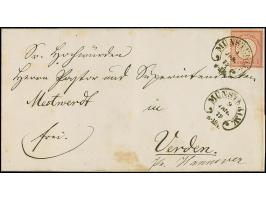 Sr. Hochwürden
Herrn Pastor und Superintendenten
Mestwerdt
in
frei.
Verden.
Pr. Hannover
MÜNSTER
MÜNSTER
9
12